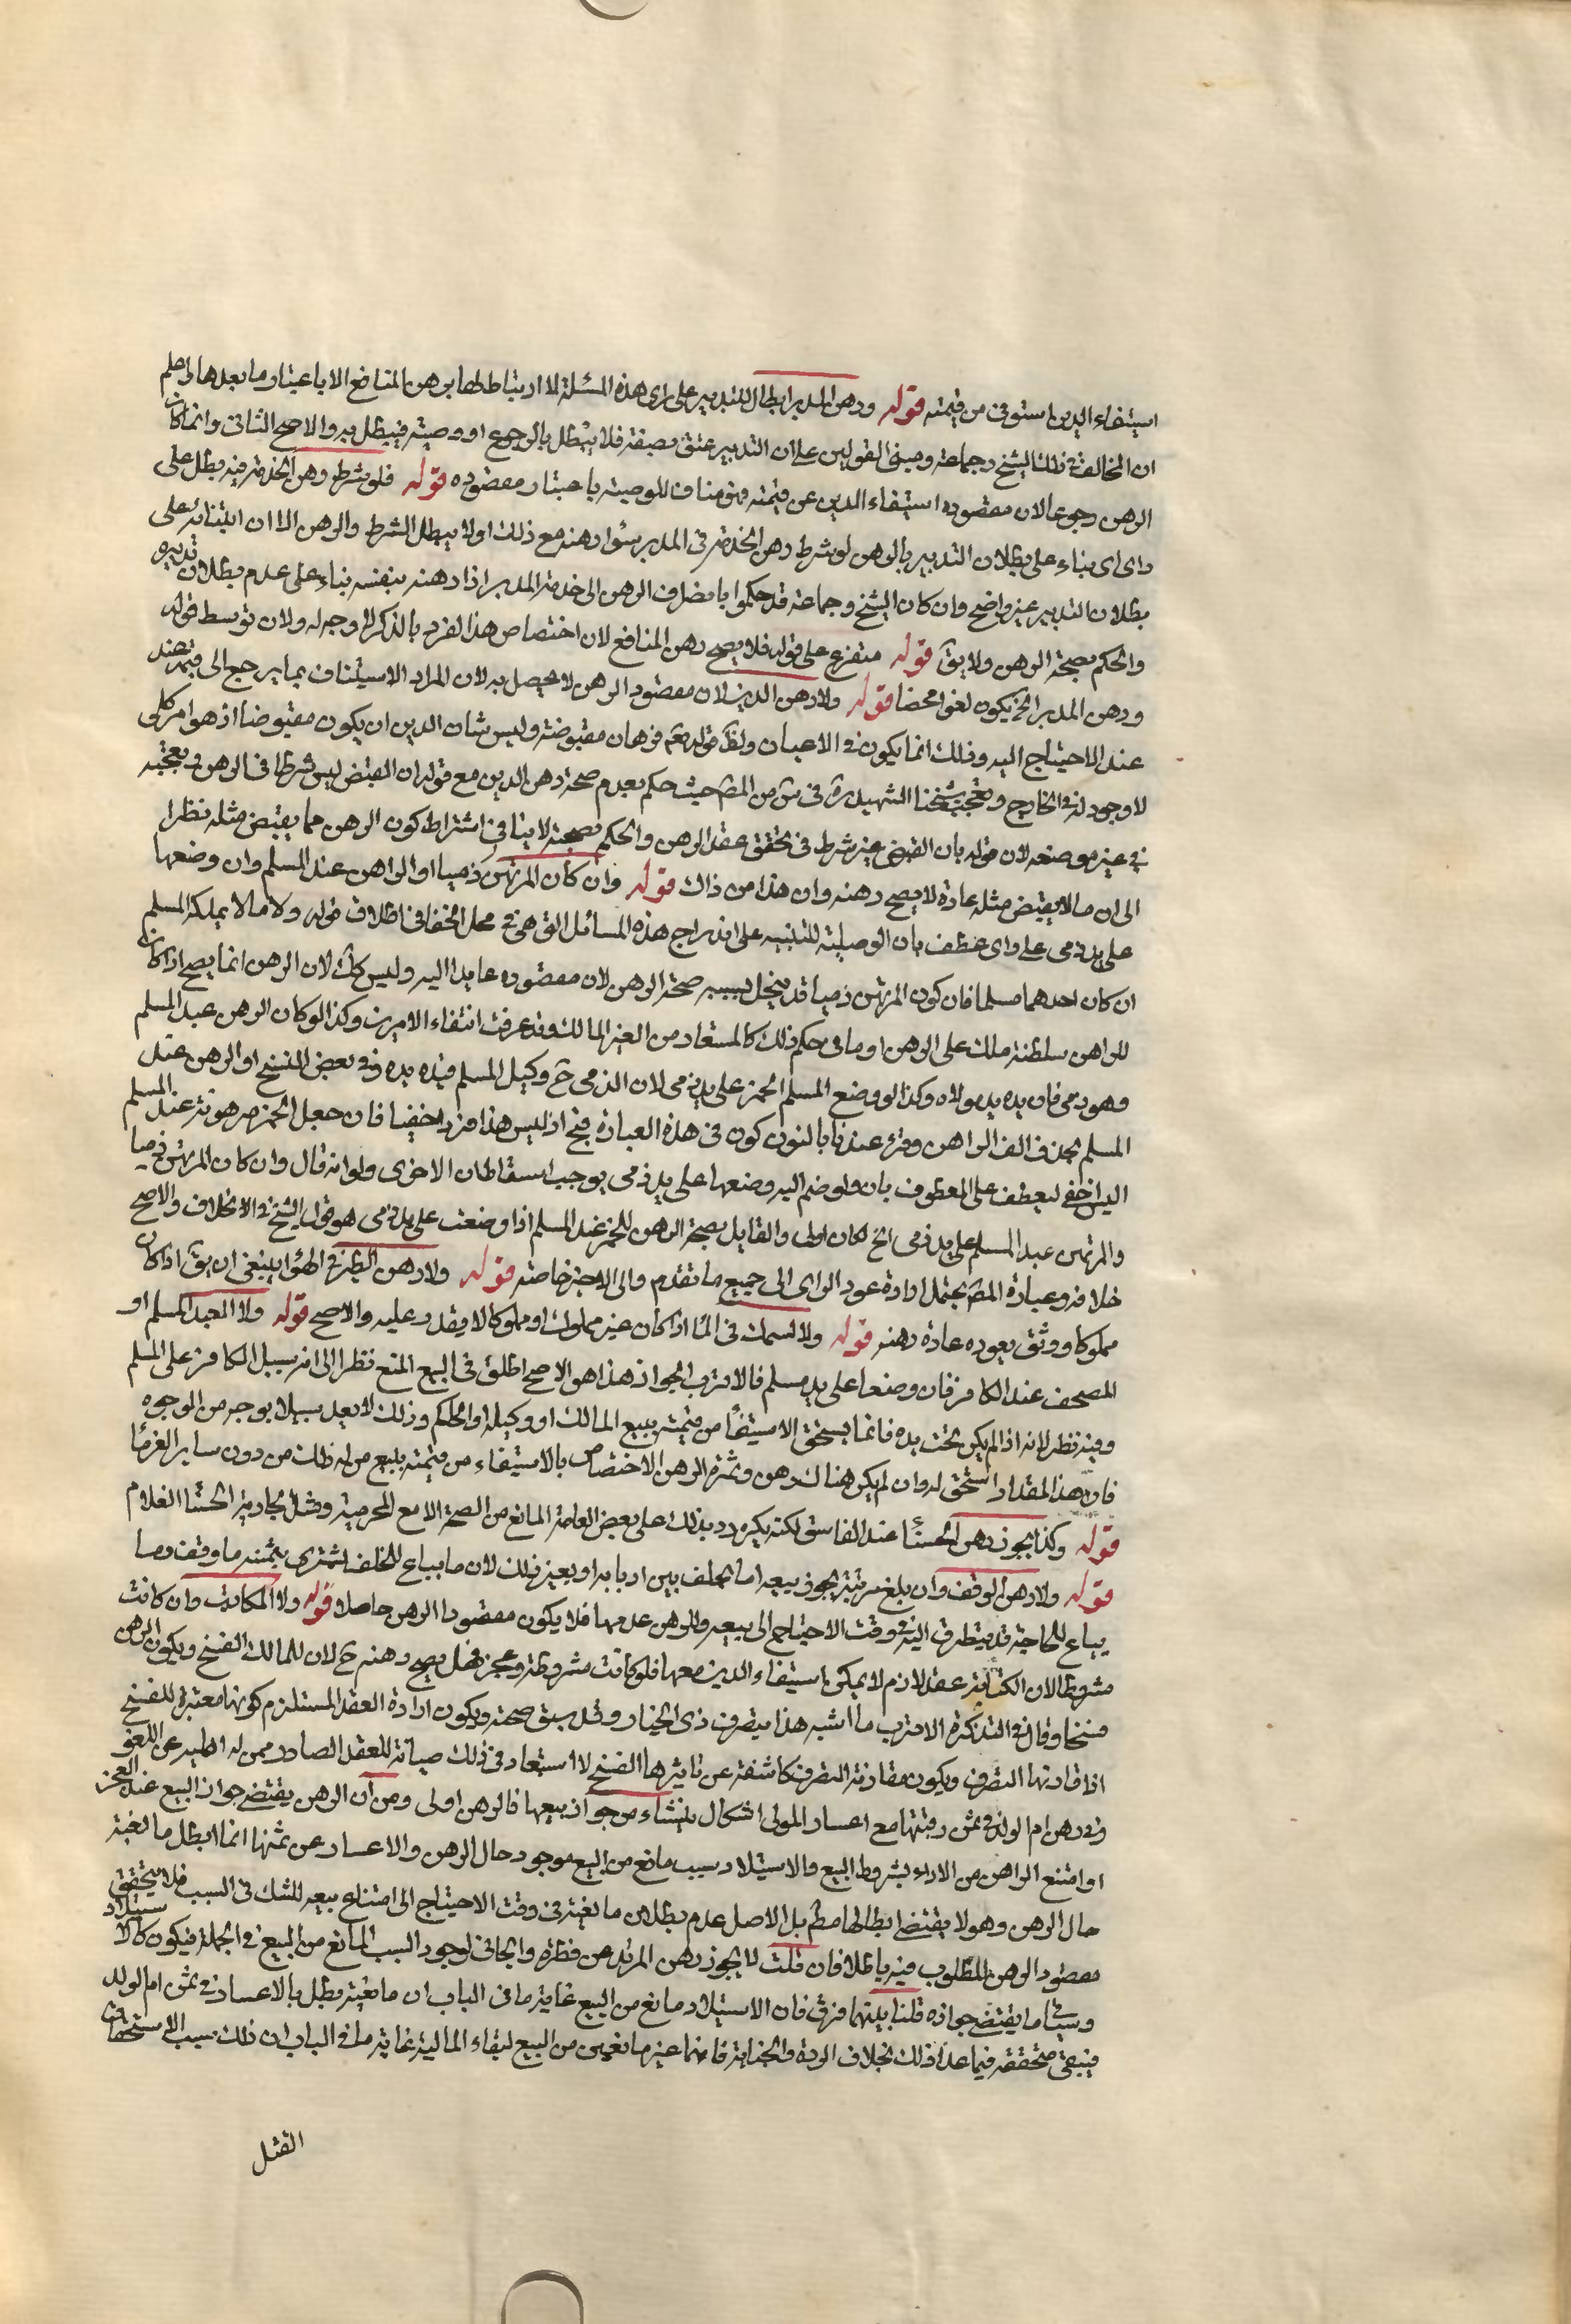 استيفاء الدين استوفى من قيمته قوله ورهن المدبر ابطال للتدبير على راى هذه المسئلة لا ارتباط لها برهن المنافع الا باعتبار ما بعدها اعلم
ان المخالف فى ذلك الشيخ وجماعة ومبنى القولين على ان التدبير عتق بصفة فلا يبطل بالرجوع او وصية فيبطل به والاصح الثانى وانما كان
الرهن رجوعا لان مقصوده استيفاء الدين من قيمته فهو مناف للوصية باعتبار مقصوده قوله فلو شرط رهن الخدمة فيه بطل على
راى اى بناء على بطلان التدبير بالرهن لو شرط رهن الخدمة فى المدبر سواء رهنه مع ذلك او لا يبطل الشرط والرهن الا ان ابتنائه على
بطلان التدبير غير واضح وان كان الشيخ وجماعة قد حكموا بانصراف الرهن الى خدمة المدبر اذا رهنه بنفسه بناء على عدم بطلان تدبيره
والحكم بصحة الرهن ولا يق قوله متفرع على قوله فلا يصح رهن المنافع لان اختصاص هذا الفرد بالذكر لا وجه له ولان توسط قوله
ورهن المدبر الخ يكون لغوا محضا قوله ولا رهن الدين لان مقصود الرهن لا يحصل به لان المراد الاستيناف بما يرجع الى قيمته عند
عند الاحتياج اليه وذلك انما يكون فى الاعيان ولظ قوله تعم فرهان مقبوضة وليس شان الدين ان يكون مقبوضا اذ هو امر كلى
لا وجود له فى الخارج وتعجب شيخنا الشهيد ره فى س من المص حيث حكم بعدم صحة رهن الدين مع قوله ان القبض ليس شرطا فى الرهن وتعجبه
فى غير موضعه لان قوله بان القبض غير شرط فى تحقق عقد الرهن والحكم بصحته لا ينافى اشتراط كون الرهن مما يقبض مثله نظرا
الى ان ما لا يقبض مثله عادة لا يصح رهنه وان هذا من ذاك قوله وان كان المرتهن ذميا او الراهن عند المسلم وان وضعها
على يد ذمى على راى عطف بان الوصلية للتنبيه على اندراج هذه المسائل التى هى فى محل الخفا فى اطلاق قوله ولا ما لا يملكه المسلم
ان كان احدهما مسلما فان كون المرتهن ذميا قد يتخيل بسببه صحة الرهن لان مقصوده عايد اليه وليس كك لان الرهن انما يصح اذا كان
للراهن سلطنة ملك على الرهن او ما فى حكم ذلك كالمستعار من الغير المالك وقد عرفت انتفاء الامرين وكذا لو كان الرهن عبد المسلم
وهو ذمى فان يده يد مولاه وكذا لو وضع المسلم الخمر على يد ذمى لان الذمى ح وكيل المسلم فيده يده وفى بعض النسخ او الرهن عند
المسلم بحذف الف الراهن وقرء عندنا بالنون كون فى هذه العبارة قبح اذ ليس هذا فردا خفيا فان جعل الخمر مرهونة عند المسلم
ليس اخفى ليعطف على المعطوف بان ولو ضم اليه وضعها على يد ذمى يوجب اسقاط ان الاخرى ولو انه قال وان كان المرتهن ذميا
والمرتهن عبد المسلم على يد ذمى الخ لكان اولى والقايل بصحة الرهن للخمر عند المسلم اذا وضعت على يد ذمى هو قول الشيخ فى الاخلاف والاصح
خلافه وعبارة المص يحتمل ارادة عود الراى الى جميع ما تقدم والى الاخير خاصة قوله ولا رهن الطير فى الهوا ينبغى ان يق اذا كان
مملوكا ووثق بعوده عادة رهنه قوله ولا السمك فى الماء اذا كان غير مملوك او مملوكا لا يقدر عليه والاصح قوله ولا العبد المسلم او
المصحف عند الكافر فان وضعا على يد مسلم فالاقرب الجواز هذا هو الاصح اطلق فى البيع المنع نظرا الى انه سبيل الكافر على المسلم
وفيه نظر لانه اذا لم يكن تحت يده فانما يستحق الاستيفاء من قيمته ببيع المالك او وكيله او الحاكم وذلك لا يعد سبيلا بوجه من الوجوه
فان هذا المقدار استحق له وان لم يكن هناك رهن وثمرة الرهن الاختصاص بالاستيفاء من قيمته ببيع من له ذلك من دون ساير الغرماء
قوله وكذا يجوز رهن الحسناء عند الفاسق لكنه يكره رد بذلك على بعض العامة المانع من الصحة الا مع المحرمية ومثل الجارية الحسنا الغلام
قوله ولا رهن الوقف وان بلغ مرتبة يجوز بيعه اما لخلف بين اربابه او بغير ذلك لان ما يباع للخلف يشترى بثمنه ما وقف وما
يباع للحاجة قد يتطرق اليه فى وقت الاحتياج الى بيعه والرهن عدمها فلا يكون مقصود الرهن حاصلا قوله ولا المكاتب وان كانت
مشروطا لان الكتابة عقد لازم لا يمكن استيفاء الدين معها فلو كانت مشروطة وعجز فهل يصح رهنه ح لان للمالك الفسخ ويكون الرهن
فسخا وقال فى التذكرة الاقرب ما اشبه هذا بتصرف ذى الخيار وقد سبق صحته ويكون ارادة العقد المستلزم كونها معتبرة للفسخ
اذا قارنها التصرف ويكون مقارنة التصرف كاشفة عن تاثيرها الفسخ لا استبعاد فى ذلك صيانة للعقد الصادر ممن له اهلية عن اللغو
وفى رهن ام الولد فى ثمن رقبتها مع اعسار المولى اشكال ينشاء من جواز بيعها فالرهن اولى ومن ان الرهن يقتضى جواز البيع عند العجز
او امتنع الراهن من الاداء بشروط البيع والاستيلاد سبب مانع من البيع موجود حال الرهن والاعسار عن ثمنها انما ابطل مانعيته
حال الرهن وهو لا يقتضى ابطالها مطم بل الاصل عدم بطلان مانعيته فى وقت الاحتياج الى امتناع بيعه للشك فى السبب فلا يتحقق
مقصود الرهن المطلوب فيه باطلا فان قلت لا يجوز رهن المرتد عن فطرة والجانى لوجود السبب المانع من البيع فى الجملة فيكون كالاستيلاد
وسياتى ما يقتضى جوازه قلنا بينهما فرق فان الاستيلاد مانع من البيع غاية ما فى الباب ان مانعيته يبطل بالاعسار فى ثمن ام الولد
فيبقى متحققة فيما عدا ذلك بخلاف الردة والجناية فانهما غير مانعين من البيع لبقاء المالية غاية ما فى الباب ان ذلك سبب لاستحقاق
القتل